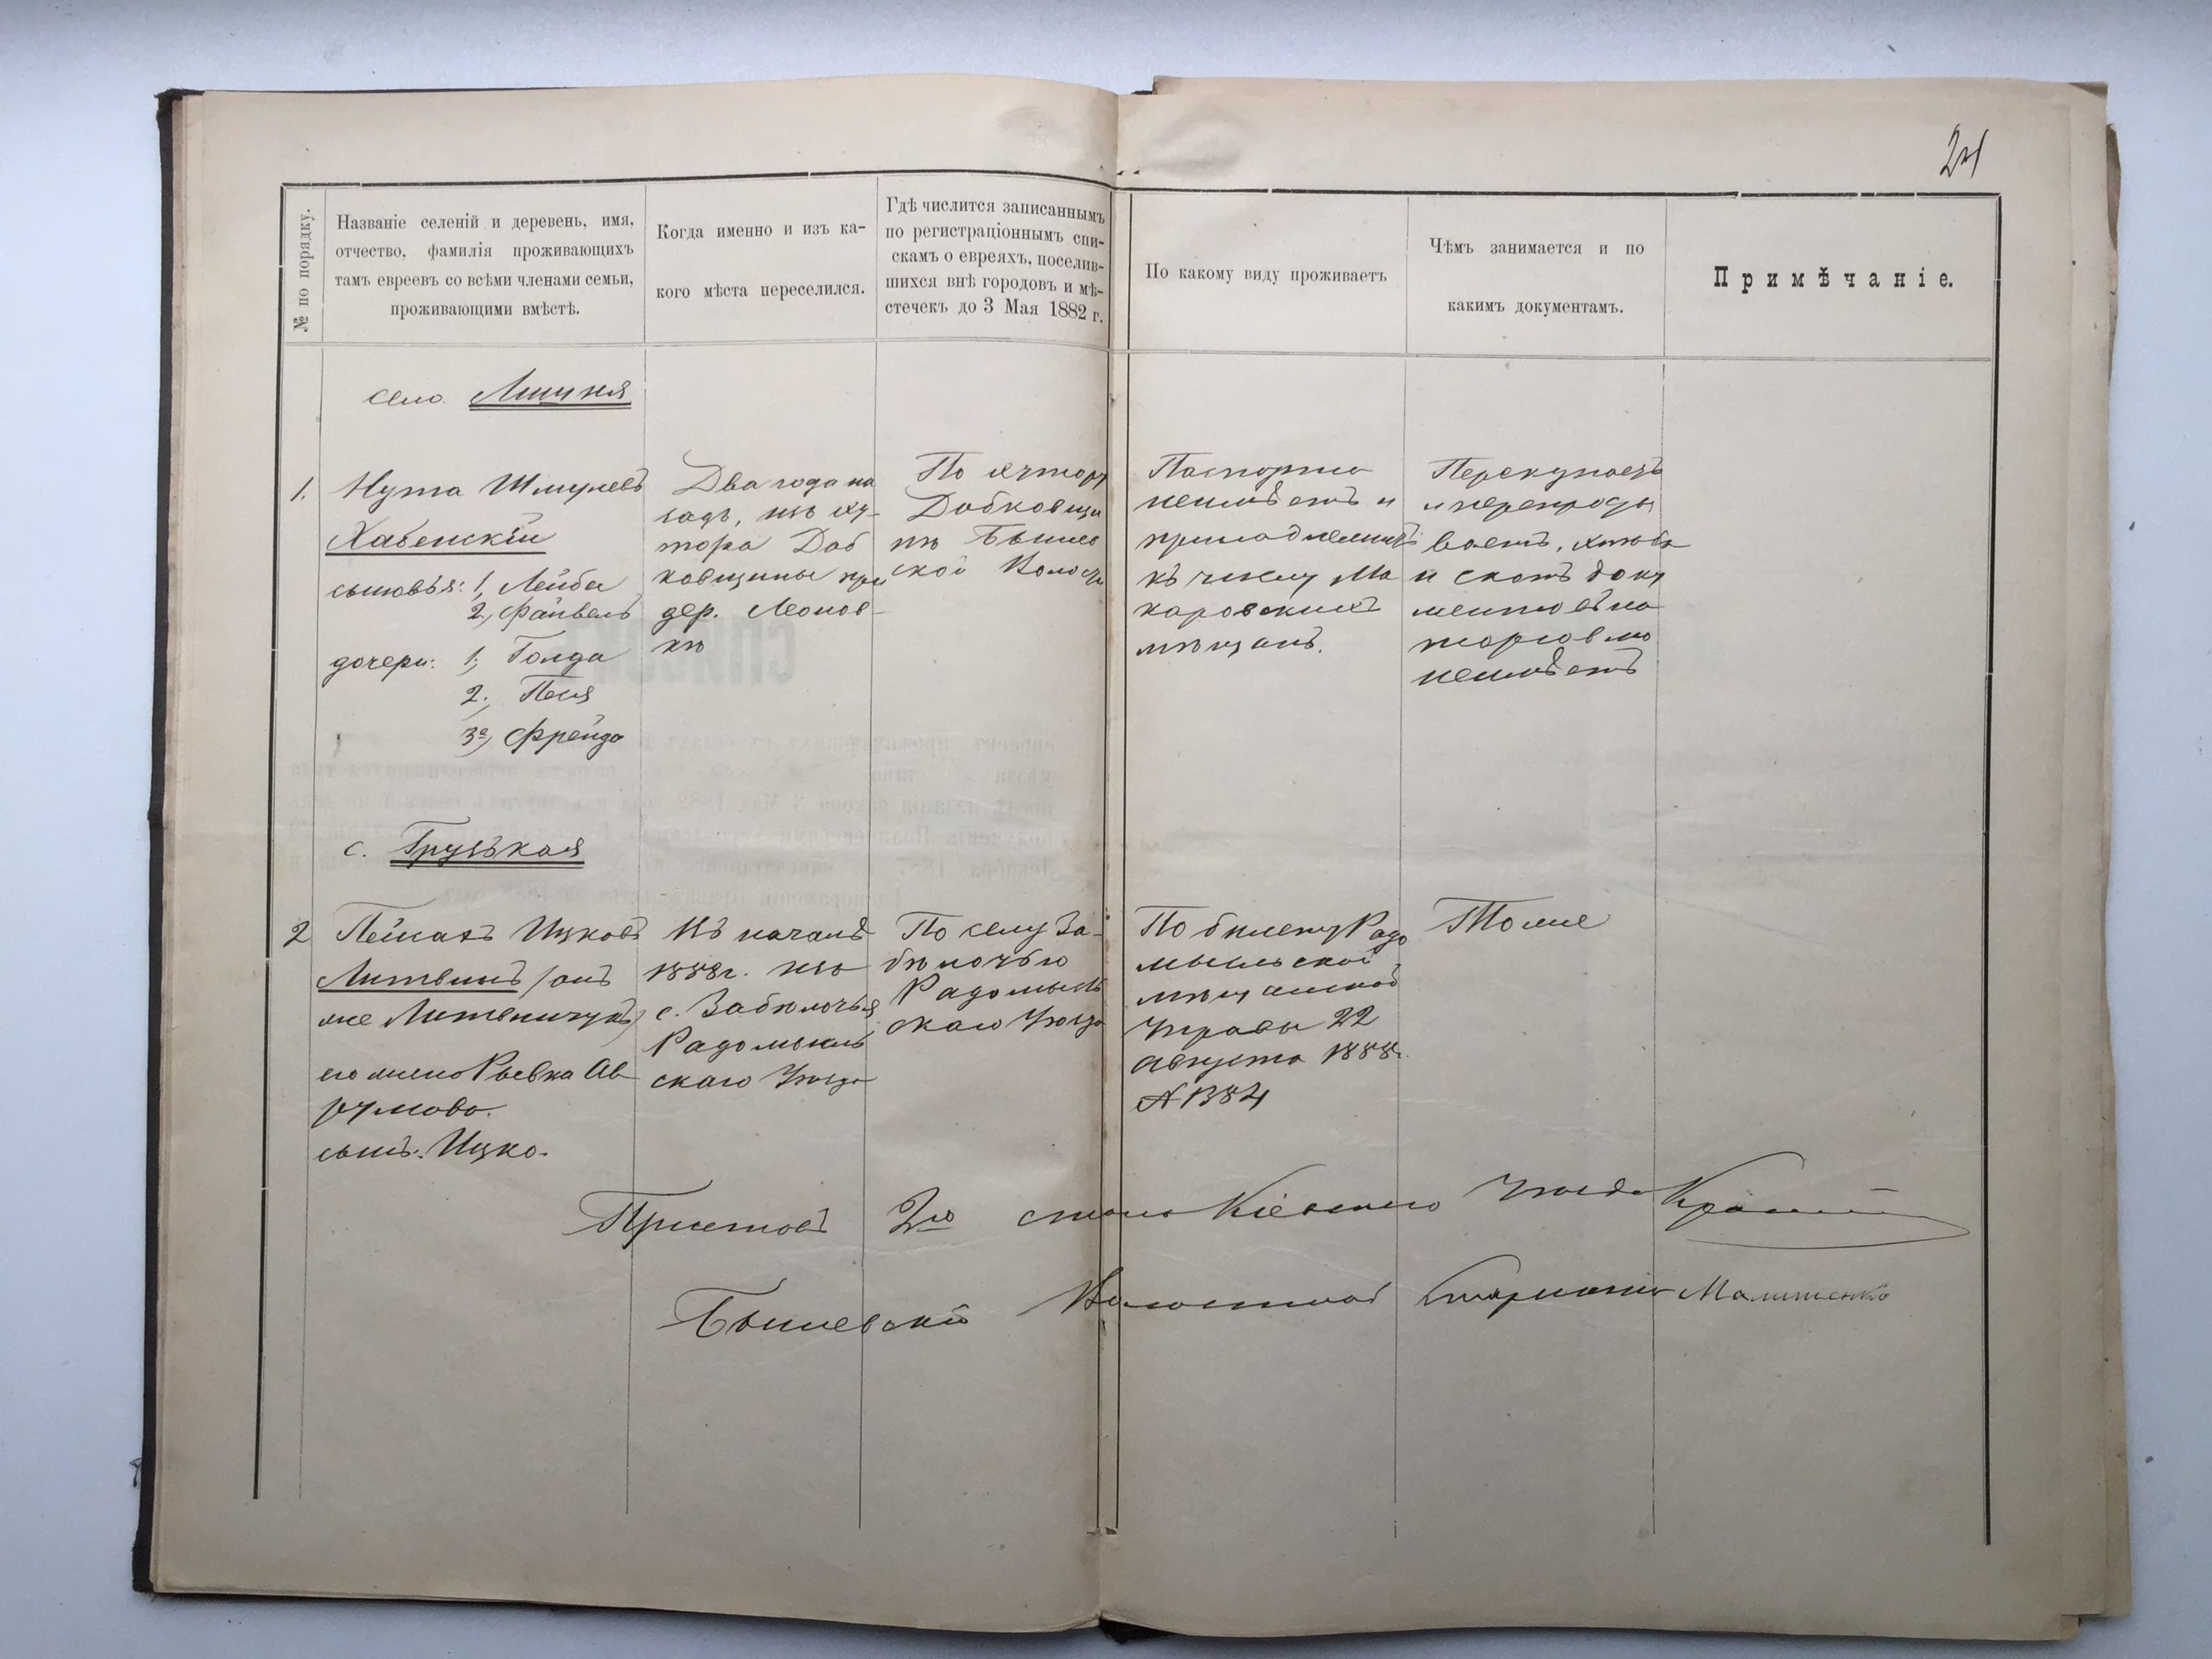 24
№ по порядку.
Названіе селеній и деревень, имя,
отчество, фамилія проживающихъ
тамъ евреевъ со всѣми членами семьи,
проживающими вмѣстѣ.
Когда именно и изъ ка-
кого мѣста переселился.
Гдѣ числится записаннымъ
по регистраціоннымъ спи-
скамъ о евреяхъ, поселив-
шихся внѣ городовъ и мѣ-
стечекъ до 3 Мая 1882 г.
По какому виду проживаетъ
Чѣмъ занимается и по
какимъ документамъ.
Примѣчаніе.
село Лишня
1.
Нута Шмулевъ
Хабенскій
сыновья: 1, Лейба
2, Файвель
дочери: 1, Голда
2, Песя
3, Фрейда
Два года на
задъ, изъ ху-
тора Доб
ковщины при
дер. Леонов-
кѣ
По хутору
Добковщи
нѣ Бышев
ской Волости
Паспорта
неимѣетъ и
принадлежитъ
къ числу Ма
каровскихъ
мѣщанъ.
Перекупаетъ
и перепрода
ваетъ, хлѣбъ
и скотъ доку
ментовъ на
торговлю
неимѣетъ
с. Грузькая
2
Пейсахъ Ицковъ
Литвинъ /онъ
же Литвинчукъ/
его жена Ривка Ав
румова.
сынъ: Ицко.
Въ началѣ
1888г. изъ
с. Забѣлочья
Радомысль
скаго Уѣзда
По селу За-
бѣлочью
Радомысль
скаго Уѣзда
По билету Радо
мысльской
мѣщанской
Управы 22
августа 1888г.
№ 1384
Тоже
Приставъ 2го стана Кіевского Уѣзда
Бышевскій Волостной Старшина Малишенко